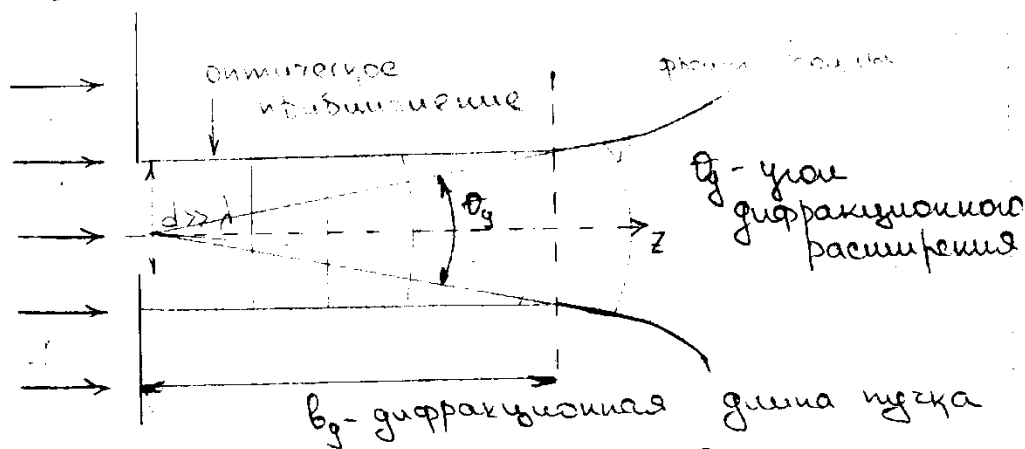 оптическое
приближение
d >> λ
θд
z
θд - угол
дифракционного
расширения
bд - дифракционная длина пучка